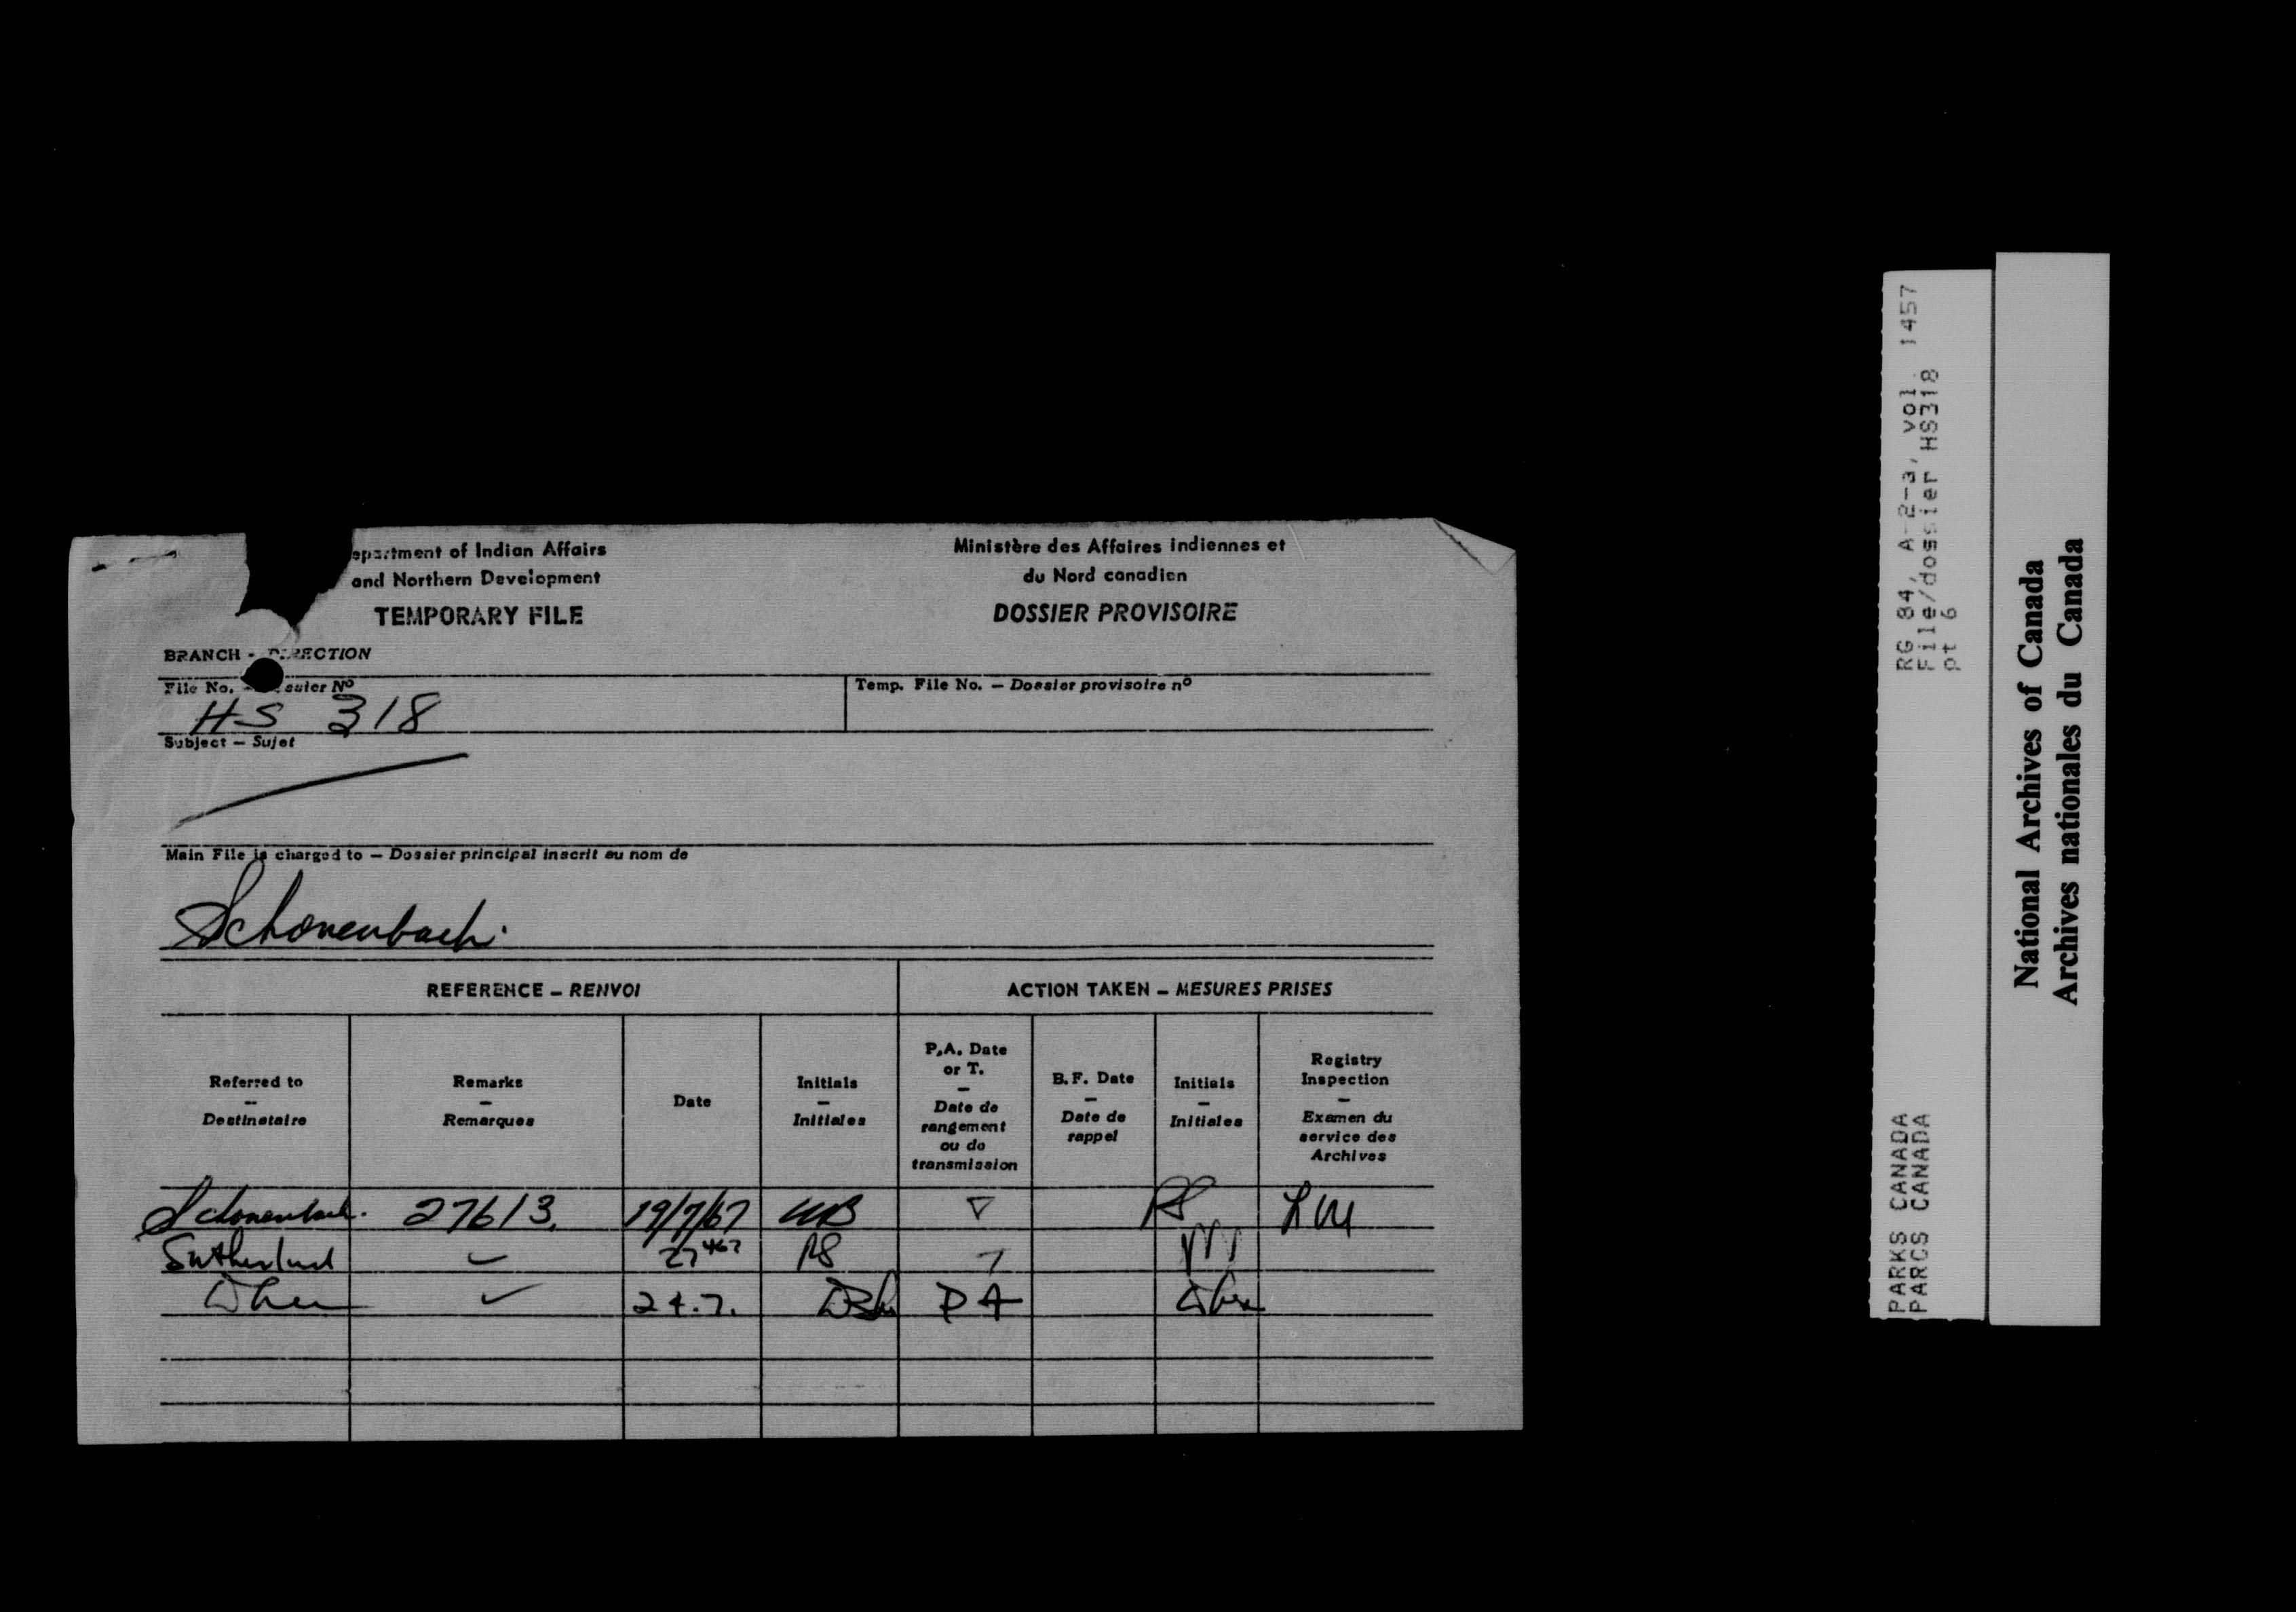 epartment of Indian Affairs
and Northern Development
TEMPORARY FILE
Ministère des Affaires indiennes et
du Nord canadien
DOSSIER PROVISOIRE
BRANCH - DIRECTION
File No. - Dossier Nº
HS 318
Temp. File No. — Dossier provisoire nº
Subject — Sujet
Main File is charged to — Dossier principal inscrit au nom de
Schonenbach.
REFERENCE — RENVOI
ACTION TAKEN — MESURES PRISES
Referred to
—
Destinataire
Remarks
—
Remarques
Date
Initials
—
Initiales
P.A. Date
or T.
—
Date de
rangement
ou de
transmission
B.F. Date
—
Date de
rappel
Initials
—
Initiales
Registry
Inspection
—
Examen du
service des
Archives
Schonenbach. 27613. 19/7/67 WB RS
Sutherland RS
24.7. PA
RG 84, A-2-a, vol. 1457
File/dossier HS318
pt 6
PARKS CANADA
PARCS CANADA
National Archives of Canada
Archives nationales du Canada